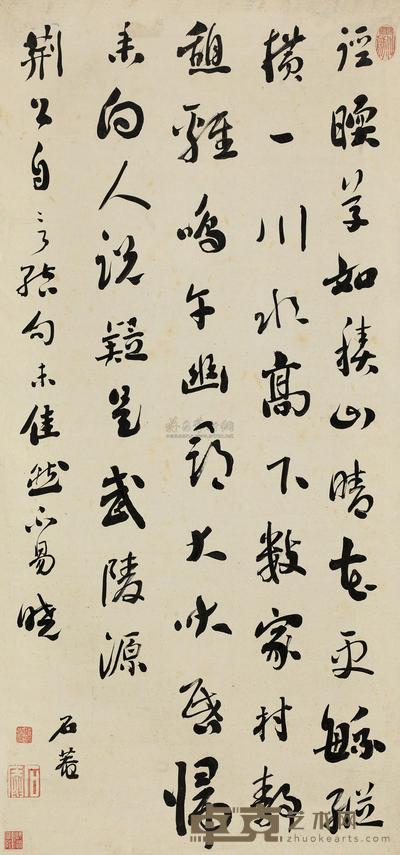 徑暖草如積山晴花更繁縱
橫一川水高下數家村静
憩雞鳴午幽尋犬吠昏歸
來向人說疑是武陵源
荊公自言結句未佳然不易曉
石菴
卓克艺术网
www.zhuokearts.com